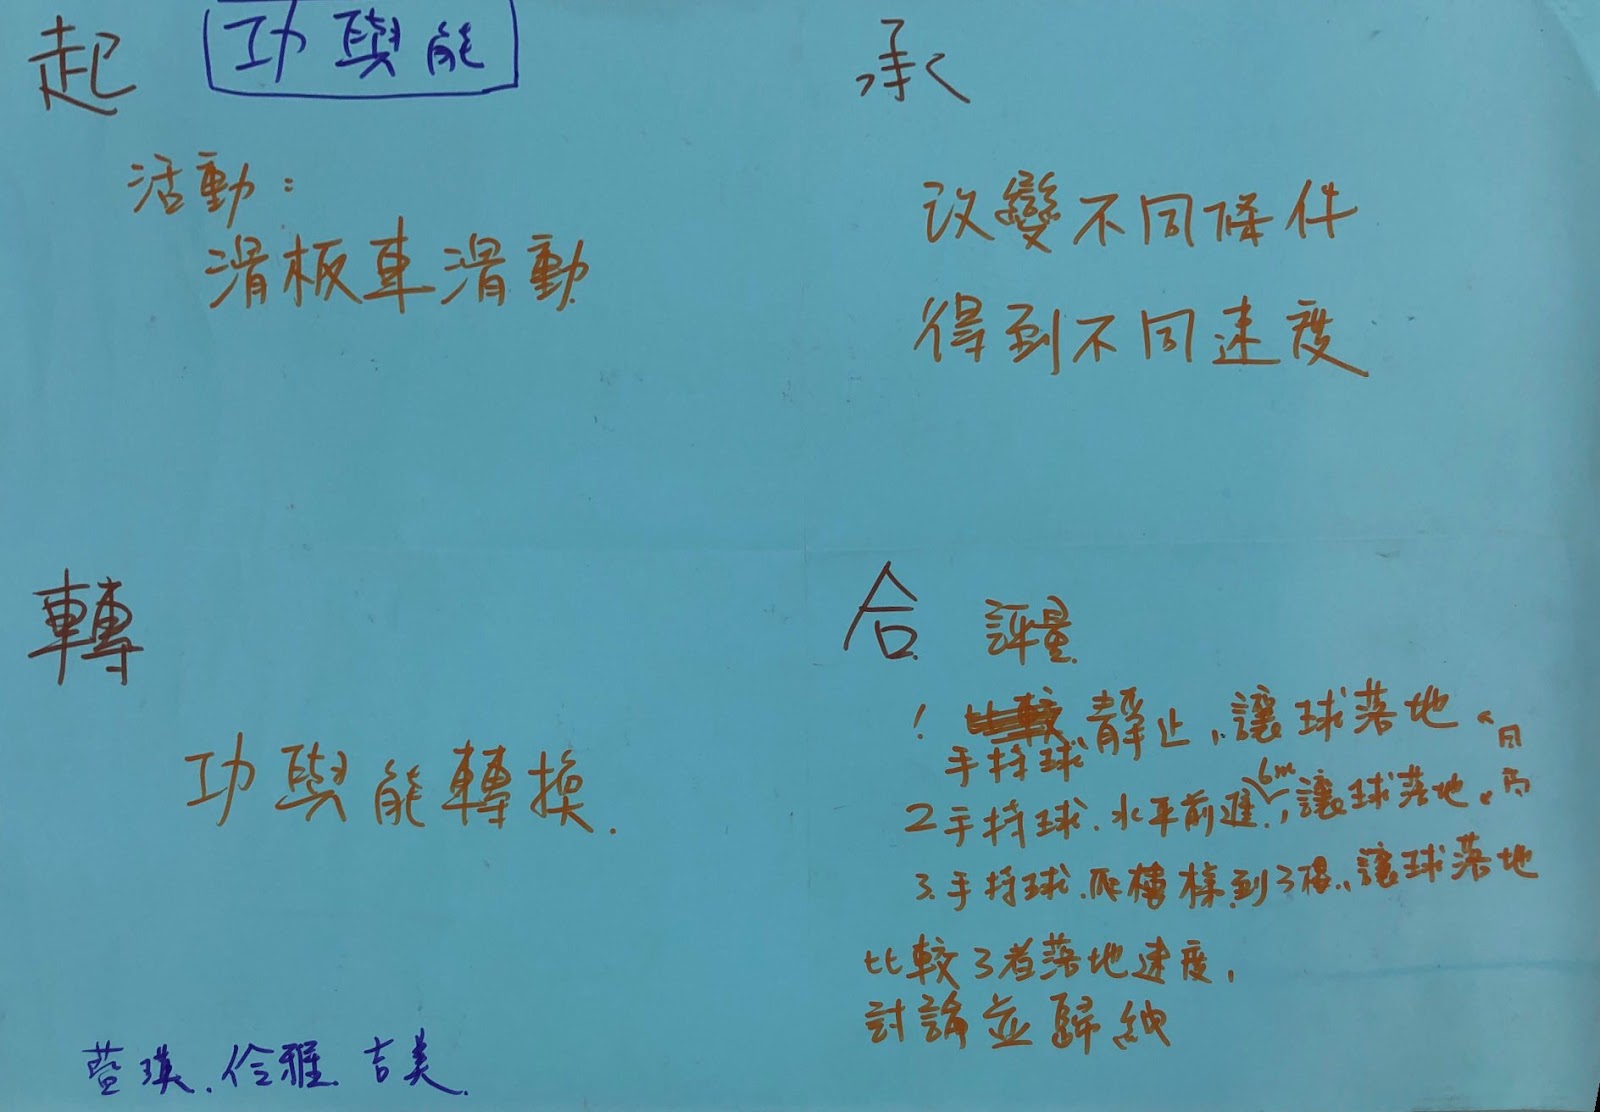 起
功與能
活動：
滑板車滑動
承
改變不同條件
得到不同速度
轉
功與能轉換.
合
評量
1. 手持球靜止，讓球落地
同高
2 手持球、水平前進6m，讓球落地
3. 手持球、爬樓梯到3樓，讓球落地
比較3者落地速度，
討論並歸納
伶雅、吉美